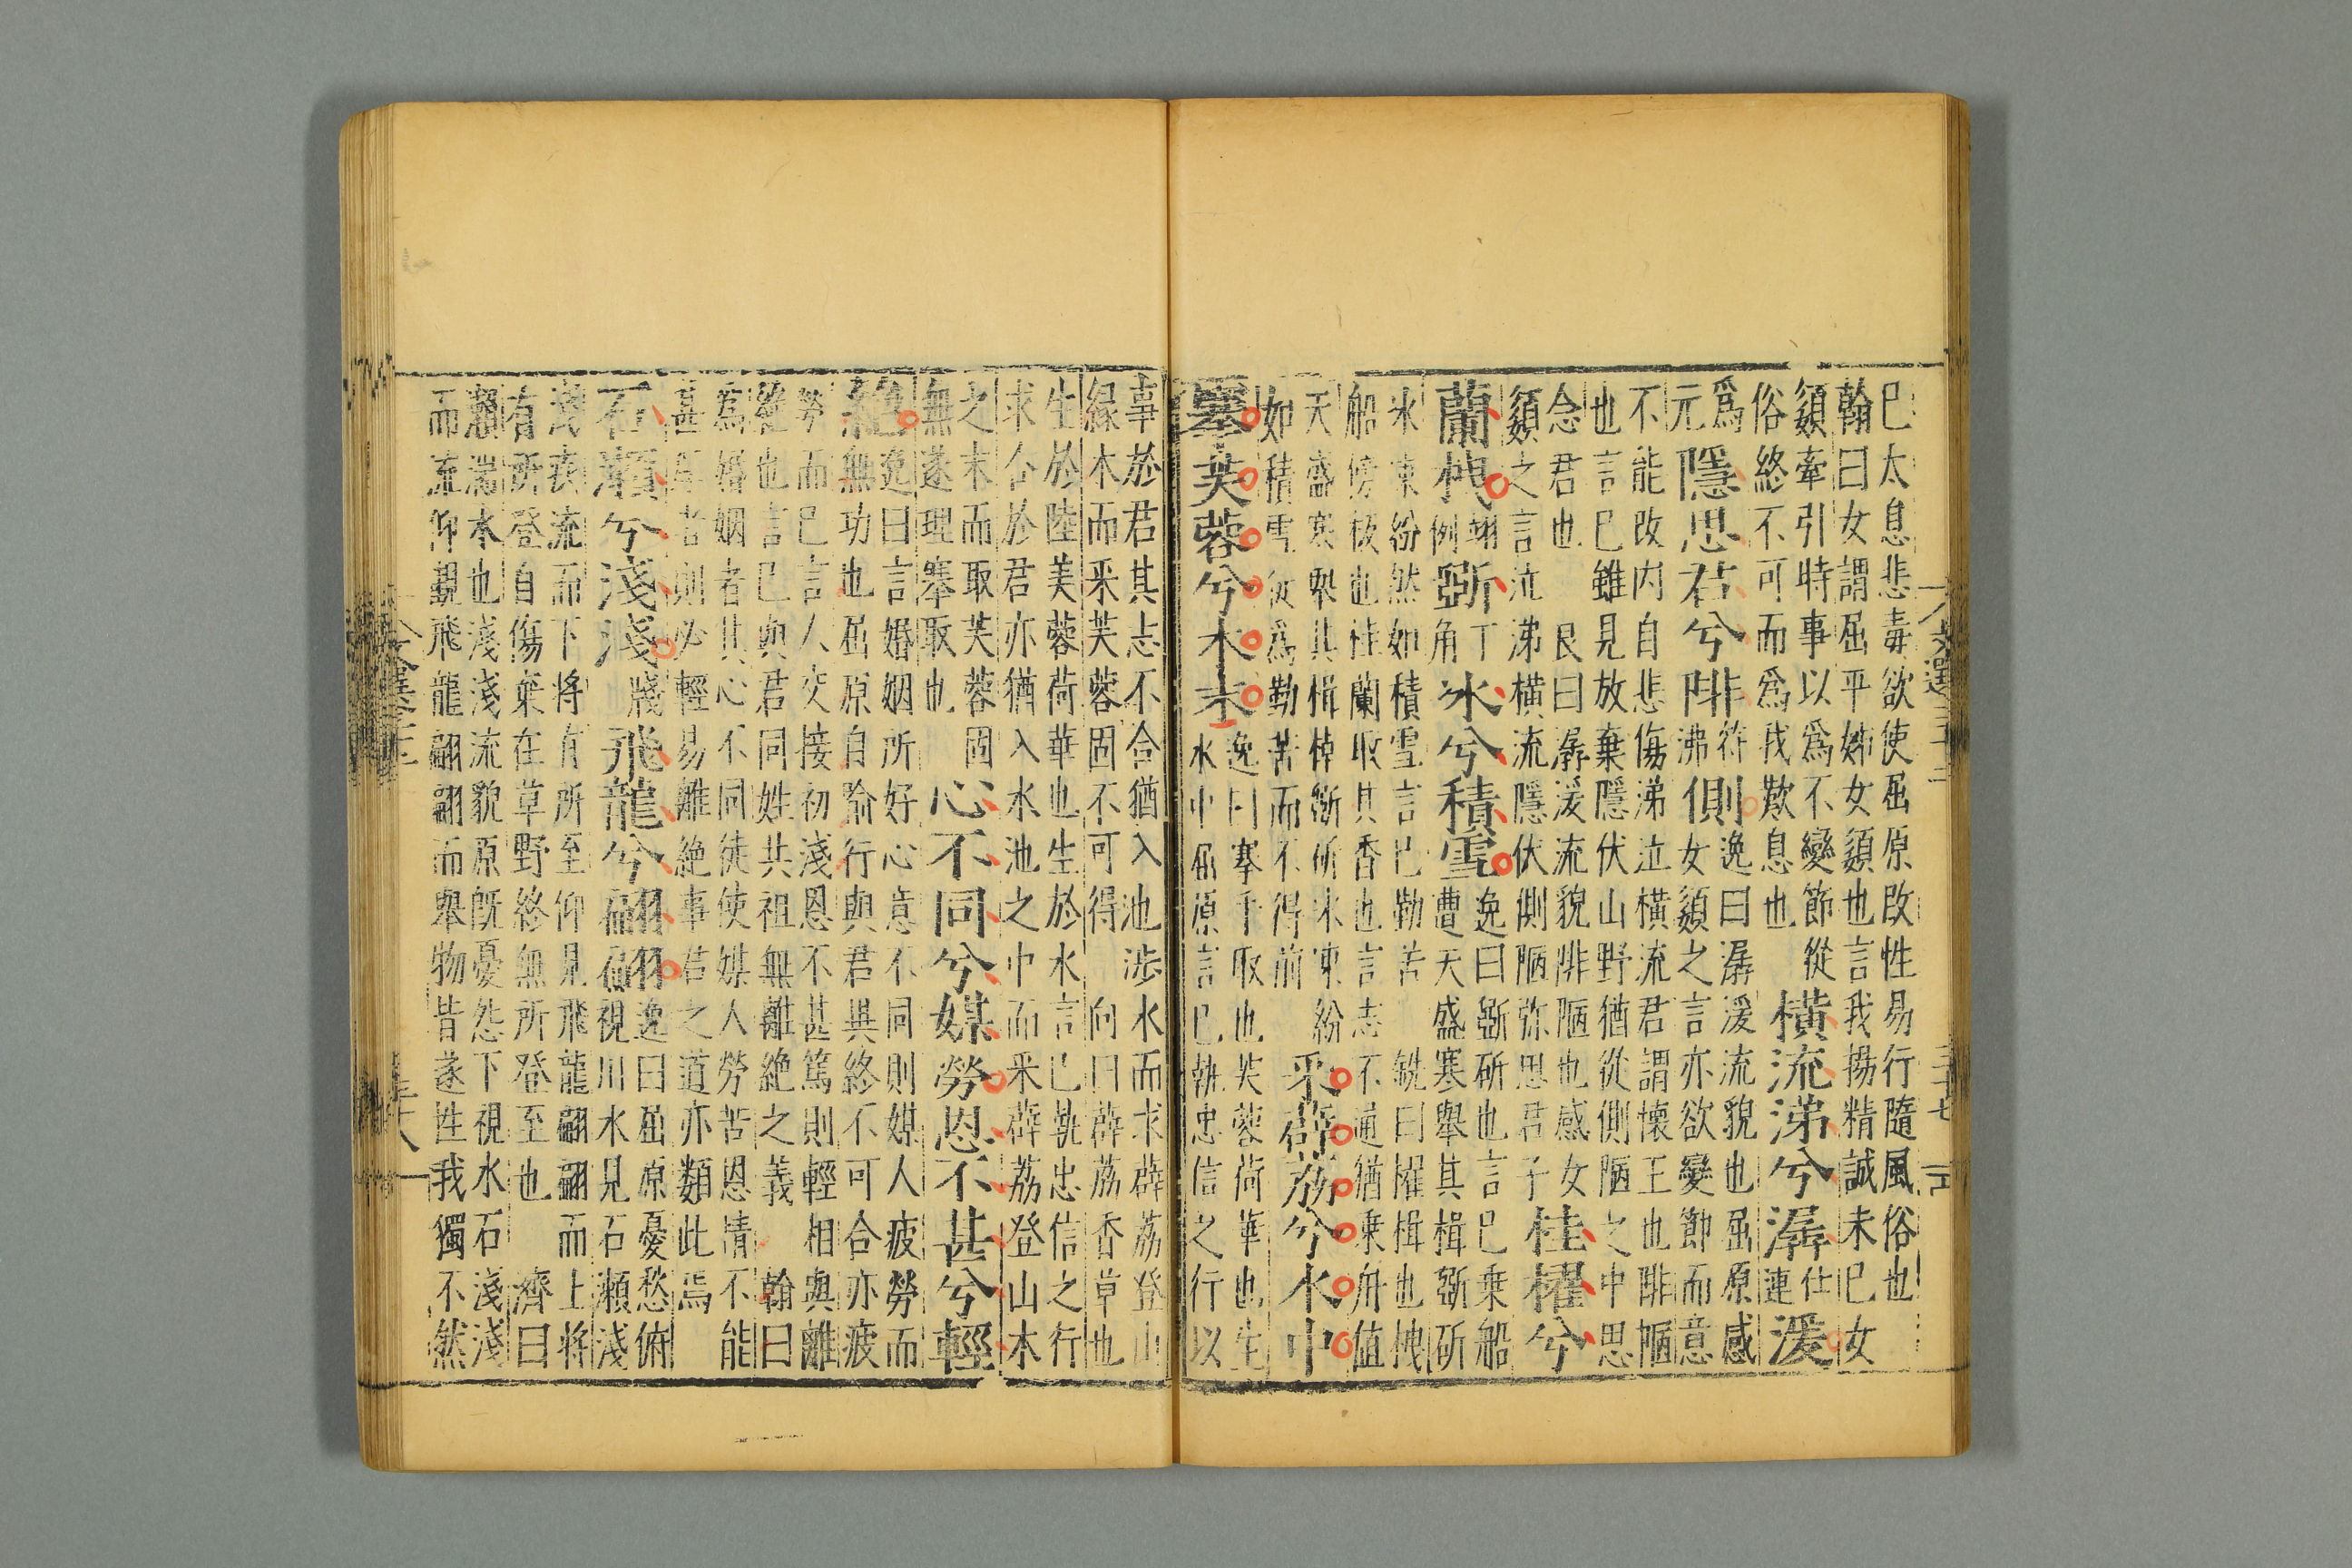 巳太息悲毒欲使屈原改性易行隨風俗也
翰曰女謂屈平姊女嬃也言我揚精誠未巳女
嬃牽引時事以爲不變節從
俗終不可而爲我歎息也
橫流涕兮潺仕連湲
爲
元
隱思君兮陫符沸側
逸曰潺湲流貌也屈原感
女嬃之言亦欲變節而意
不能改内自悲傷涕泣橫流君謂懷王也陫陋
也言巳雖見放棄隱伏山野猶從側陋之中思
念君也 良曰潺湲流貌陫陋也感女
嬃之言泣涕橫流隱伏側陋弥思君子
桂櫂兮
蘭枻翊例斲丁角冰兮積雪
逸曰斲斫也言巳乗船
遭天盛寒舉其楫斲斫
氷凍紛然如積雪言巳勤苦 銑曰櫂楫也枻
船傍板也桂蘭取其香也言志不通猶乗舟值
天盛寒舉其楫棹斲斫冰凍紛
如積雪徒爲勤苦而不得前
采薜荔兮水中
搴芙蓉兮木末
逸曰搴手取也芙蓉荷華也生
水中屈原言巳執忠信之行以
事於君其志不合猶入池涉水而求薜荔登山
緣木而采芙蓉固不可得 向曰薜荔香草也
生於陸美蓉荷華也生於水言巳執忠信之行
求合於君亦猶入水池之中而采薜荔登山木
之末而取芙蓉固
無遂理搴取也
心不同兮媒勞恩不甚兮輕
絶
逸曰言婚姻所好心意不同則媒人疲勞而
絶無功也屈原自喻行與君異終不可合亦疲
勞而巳言人交接初淺恩不甚篤則輕相與離
絶也言巳與君同姓共祖無離絶之義 翰曰
爲婚姻者其心不同徒使媒人勞苦恩情不能
甚厚者則必輕易離絶事君之道亦類此焉
石瀬兮淺淺牋飛龍兮翩翩
逸曰屈原憂愁俯
視川水見石瀬淺
淺疾流而下將有所至仰見飛龍翩翩而上將
有所登自傷棄在草野終無所登至也 濟曰
瀬湍水也淺淺流貌原旣憂怨下視水石淺淺
而流仰觀飛龍翩翩而舉物皆遂性我獨不然